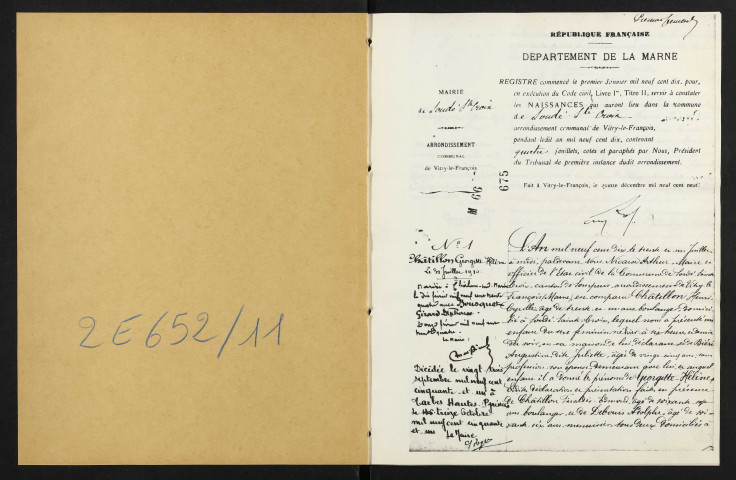 2E652/11
RÉPUBLIQUE FRANÇAISE
DÉPARTEMENT DE LA MARNE
MAIRIE
de Soudé Ste Croix
ARRONDISSEMENT
COMMUNAL
de Vitry-le-François
REGISTRE commencé le premier Janvier mil neuf cent dix, pour,
en exécution du Code civil, Livre Ier, Titre II, servir à constater
les NAISSANCES qui auront lieu dans la commune
de Soudé Ste Croix
arrondissement communal de Vitry-le-François,
pendant ledit an mil neuf cent dix, contenant
quatre feuillets, cotés et paraphés par Nous, Président
du Tribunal de première instance dudit arrondissement.
Fait à Vitry-le-François, le quinze décembre mil neuf cent neuf
M 66
675
No 1
Châtillon Georgette Hélène
Le 30 juillet 1910
Mariée à Châlons sur Marne
Bousquet
Gérard
Le Maire
Décédée le vingt trois
septembre mil neuf cent
cinquante et un à
Tarbes Hautes Pyrénées
le treize Octobre
mil neuf cent cinquante
et un Le Maire
L'An mil neuf cent dix, le trente et un Juillet,
à midi, par devant nous Nicaise Arthur, Maire et
officier de l'état civil de la Commune de Soudé Sainte
Croix, canton de Sompuis, arrondissement de Vitry le
François, Marne, est comparu Châtillon Henri
âgé de trente et un ans boulanger domici
lié à Soudé Sainte Croix, lequel nous a présenté un
enfant du sexe féminin, né hier à
du soir, en sa maison de lui déclarant et de
Augustine dite Juliette, âgée de vingt cinq ans, sans
profession son épouse demeurant avec lui, et auquel
enfant il a donné le prénom de Georgette Hélène
déclaration et présentation faites en présence
de Châtillon Edmond, âgé de soixante
ans boulanger et de Adolphe, âgé de soi
xante six ans, menuisier tous deux domiciliés à